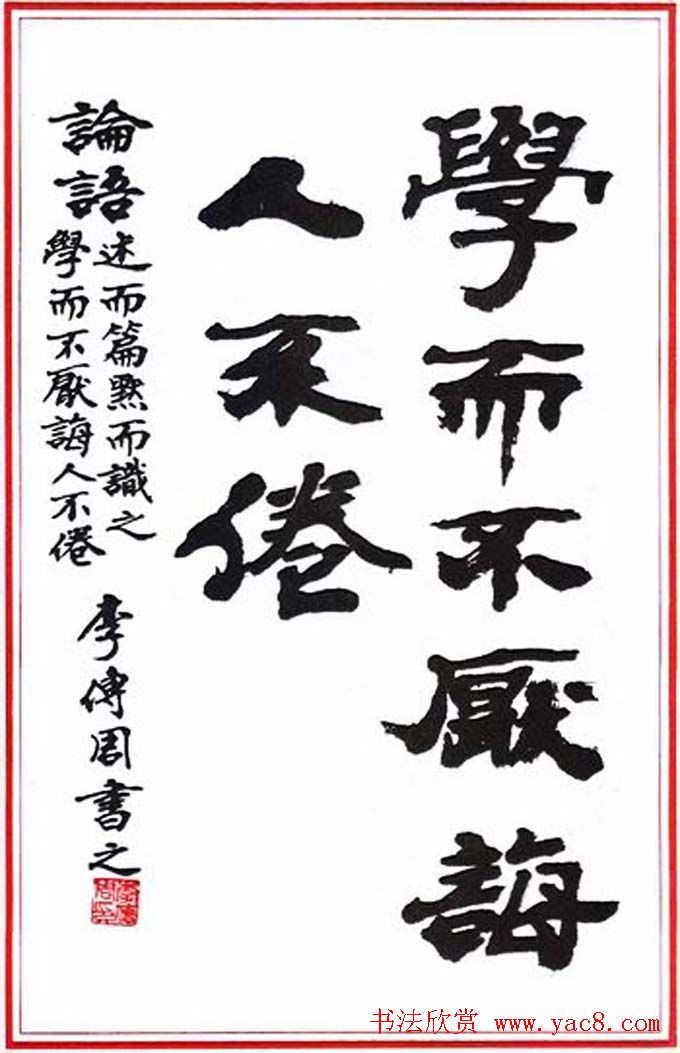 學而不厭誨
人不倦
論語
述而篇默而識之
學而不厭誨人不倦
李傳周書之
书法欣赏 www.yac8.com